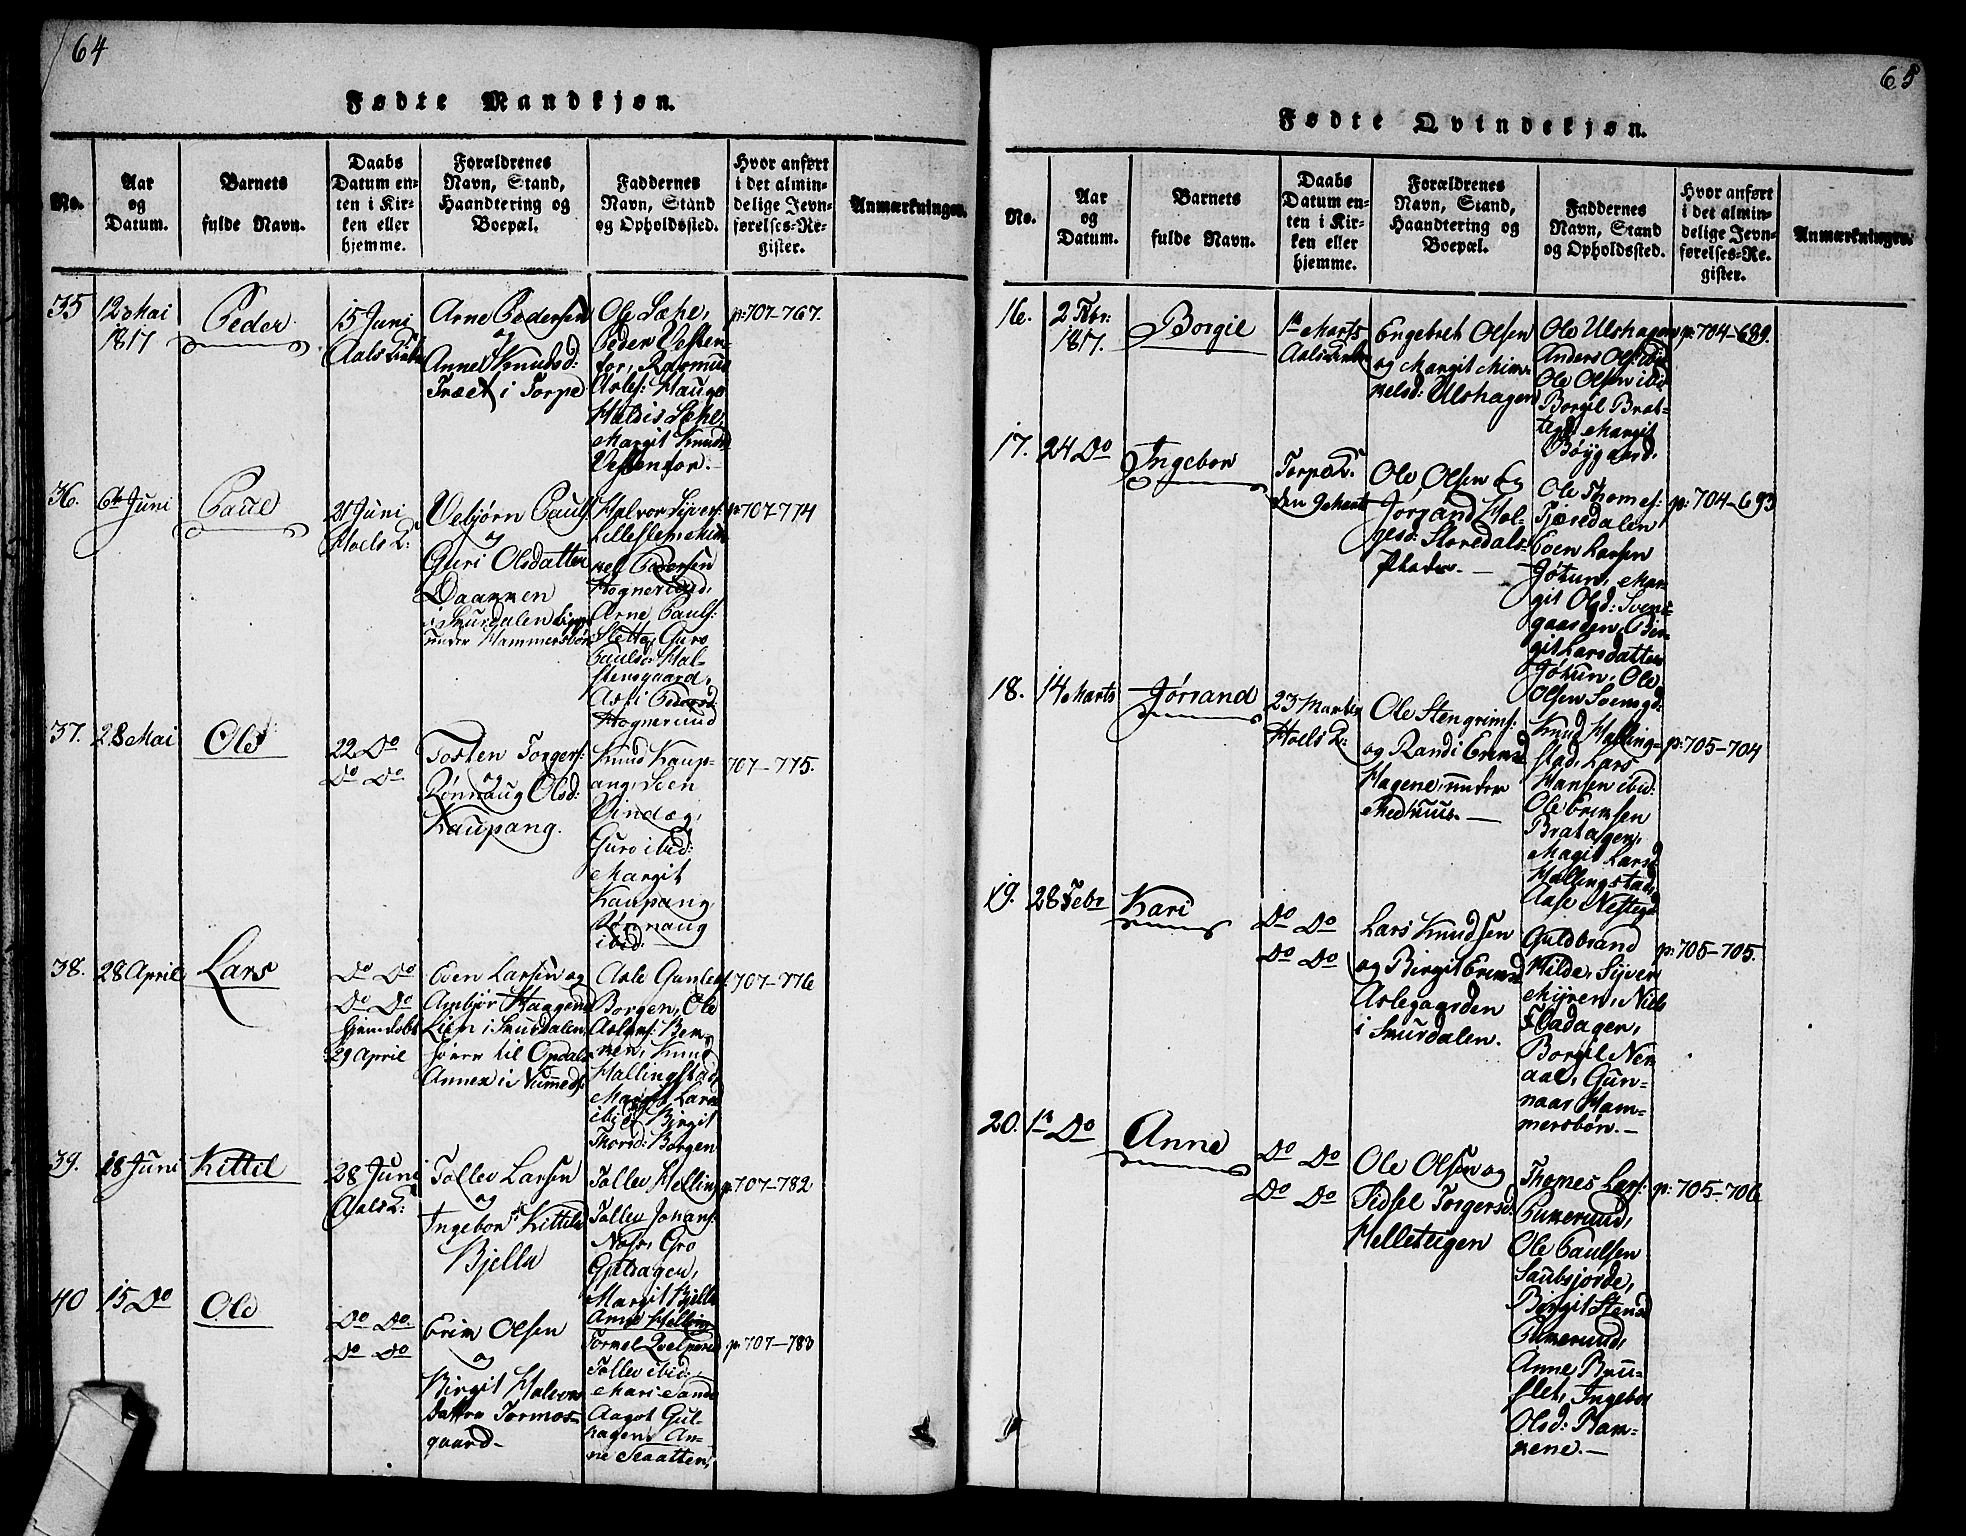 64
Fødte Mandkjøn.
No.
Aar
og
Datum.
Barnets
fulde Navn.
Daabs
Datum en-
ten i Kir-
ken eller
hjemme.
Forældrenes
Navn, Stand,
Haandtering og
Boepæl.
Faddernes
Navn, Stand
og Opholdssted.
Hvor anført
i det almin-
delige Jevn-
førelses-Re-
gister.
Anmærkninger.
35
12 Mai
1817
Peder
15 Juni
Aals Kirke
Arne Pedersen
og
Anne Knudsd:
Træet i Torpe
Ole Sæhe,
Peder Vesten-
for, Rasmus
Asles: Hauge
Haldis Sehe,
Margit Knudsd
Vestenfor.
p:707-767.
36.
6te Juni
Paul
21 Juni
Hoels K:
Vebjørn Pauls:
og
Guri Olsdatter
Daarren
i Skurdalen ligg
under Hammersbøn
Halvor Sjvers:
Lilleslem
Pedersen
Hognerud,
Arne Pauls:
Sletto, Guro
Paulsd Hal-
stensgaard,
Pedersd:
Hognerud
p:707-774
37.
28 Mai
Ole
22 Do
Do Do
Tosten Torgers:
og
Rønnaug Olsd:
Kaupang.
Knud Kaup-
ang, Sven
Vindæg,
Guro ibid:
Margit
Kaupang
Rønnaug
ibid:
707-775.
38.
28 April
Lars
Do Do
Do Do
hjemdøbt
29 April
Even Larsen og
Ambjør Haagensd
Lien i Skurdalen,
hører til Opdals
Annex i Nummeds:
Asle Gunleks
Borgen, Ole
Aslans:
Knud
Hallingstad
Margit Larsd
ibid Birgit
Thorsd: Borgen
707-776
39.
18 Juni
Kittil
28 Juni
Aals K:
Tollev Larsen
og
Ingebor Kittilsd
Bjella
Tollev Helling
Tollev Johans:
Noss, Gro
Margit Bjella
Anne Helling
p:707-782
40
15 Do
Ole
Do Do
Do Do
Erik Olsen
og
Birgit Halvors
datter Tormos-
gaard
Tollev ibid:
Mari Sande
Aagot Gul-
hagen, An-
ne Skaatten,
p:707-783
65
Fødte Qvindekjøn.
No.
Aar
og
Datum.
Barnets
fulde Navn.
Daabs
Datum en-
ten i Kir-
ken eller
hjemme.
Forældrenes
Navn, Stand,
Haandtering og
Boepæl.
Faddernes
Navn, Stand
og Opholdssted.
Hvor anført
i det almin-
delige Jevn-
førelses-Re-
gister.
Anmærkninger.
16.
2 Febr:
1817.
Borgil
1te Marts
Aals Kirke
Engebret Olsen
og Margit Mik-
kelsd: Ulshagen
Ole Ulshagen
Anders Ols: ibid
Ole Olsen ibid
Borgil Brat-
Margit
Bøygaard.
p:704-689.
17.
24 Do
Ingebor
Torpe K:
den 9de Marts
Ole Olsen og
Jorand Hol-
gesd: Storedals-
Pladen.
Ole Thomes:
Fjæredalen
Even Larsen
Jøtun, Mar-
git Olsd: Svens-
gaarden, Bir-
git Larsdatter
Jøtun, Ole
Olsen Svensgd:
p:704-693
18.
14 Marts
Jørand
23 Marts
Hoels K:
Ole Stengrims:
og Randi Eriksd
Hagene, under
Medhuus.
Knud Halling-
stad, Lars
Hansen ibid:
Ole Eriksen
Bratagen,
Magit Larsd
Hallingstad,
Aase Nestegd
p:705-704
19.
28 Febr
Kari
Do Do
Do Do
Lars Knudsen
og Birgit Eriksd
Aslegaarden
i Skurdalen.
Guldbrand
Hilde, Sjver
Myren, Niels
Fladagen,
Borgil Ner-
aal, Gun-
naar Ham-
mersbøn.
p:705-705.
20.
1te Do
Anne
Do Do
Do Do
Ole Olsen og
Sidsel Torgersd:
Velleteigen
Thomes Lars:
Eukerud,
Ole Paulsen
Saubsjorde,
Birgit Stensd
Eukerud,
Anne Bru-
flet, Ingebor
Olsd: Bak-
kene.
p:705-706.